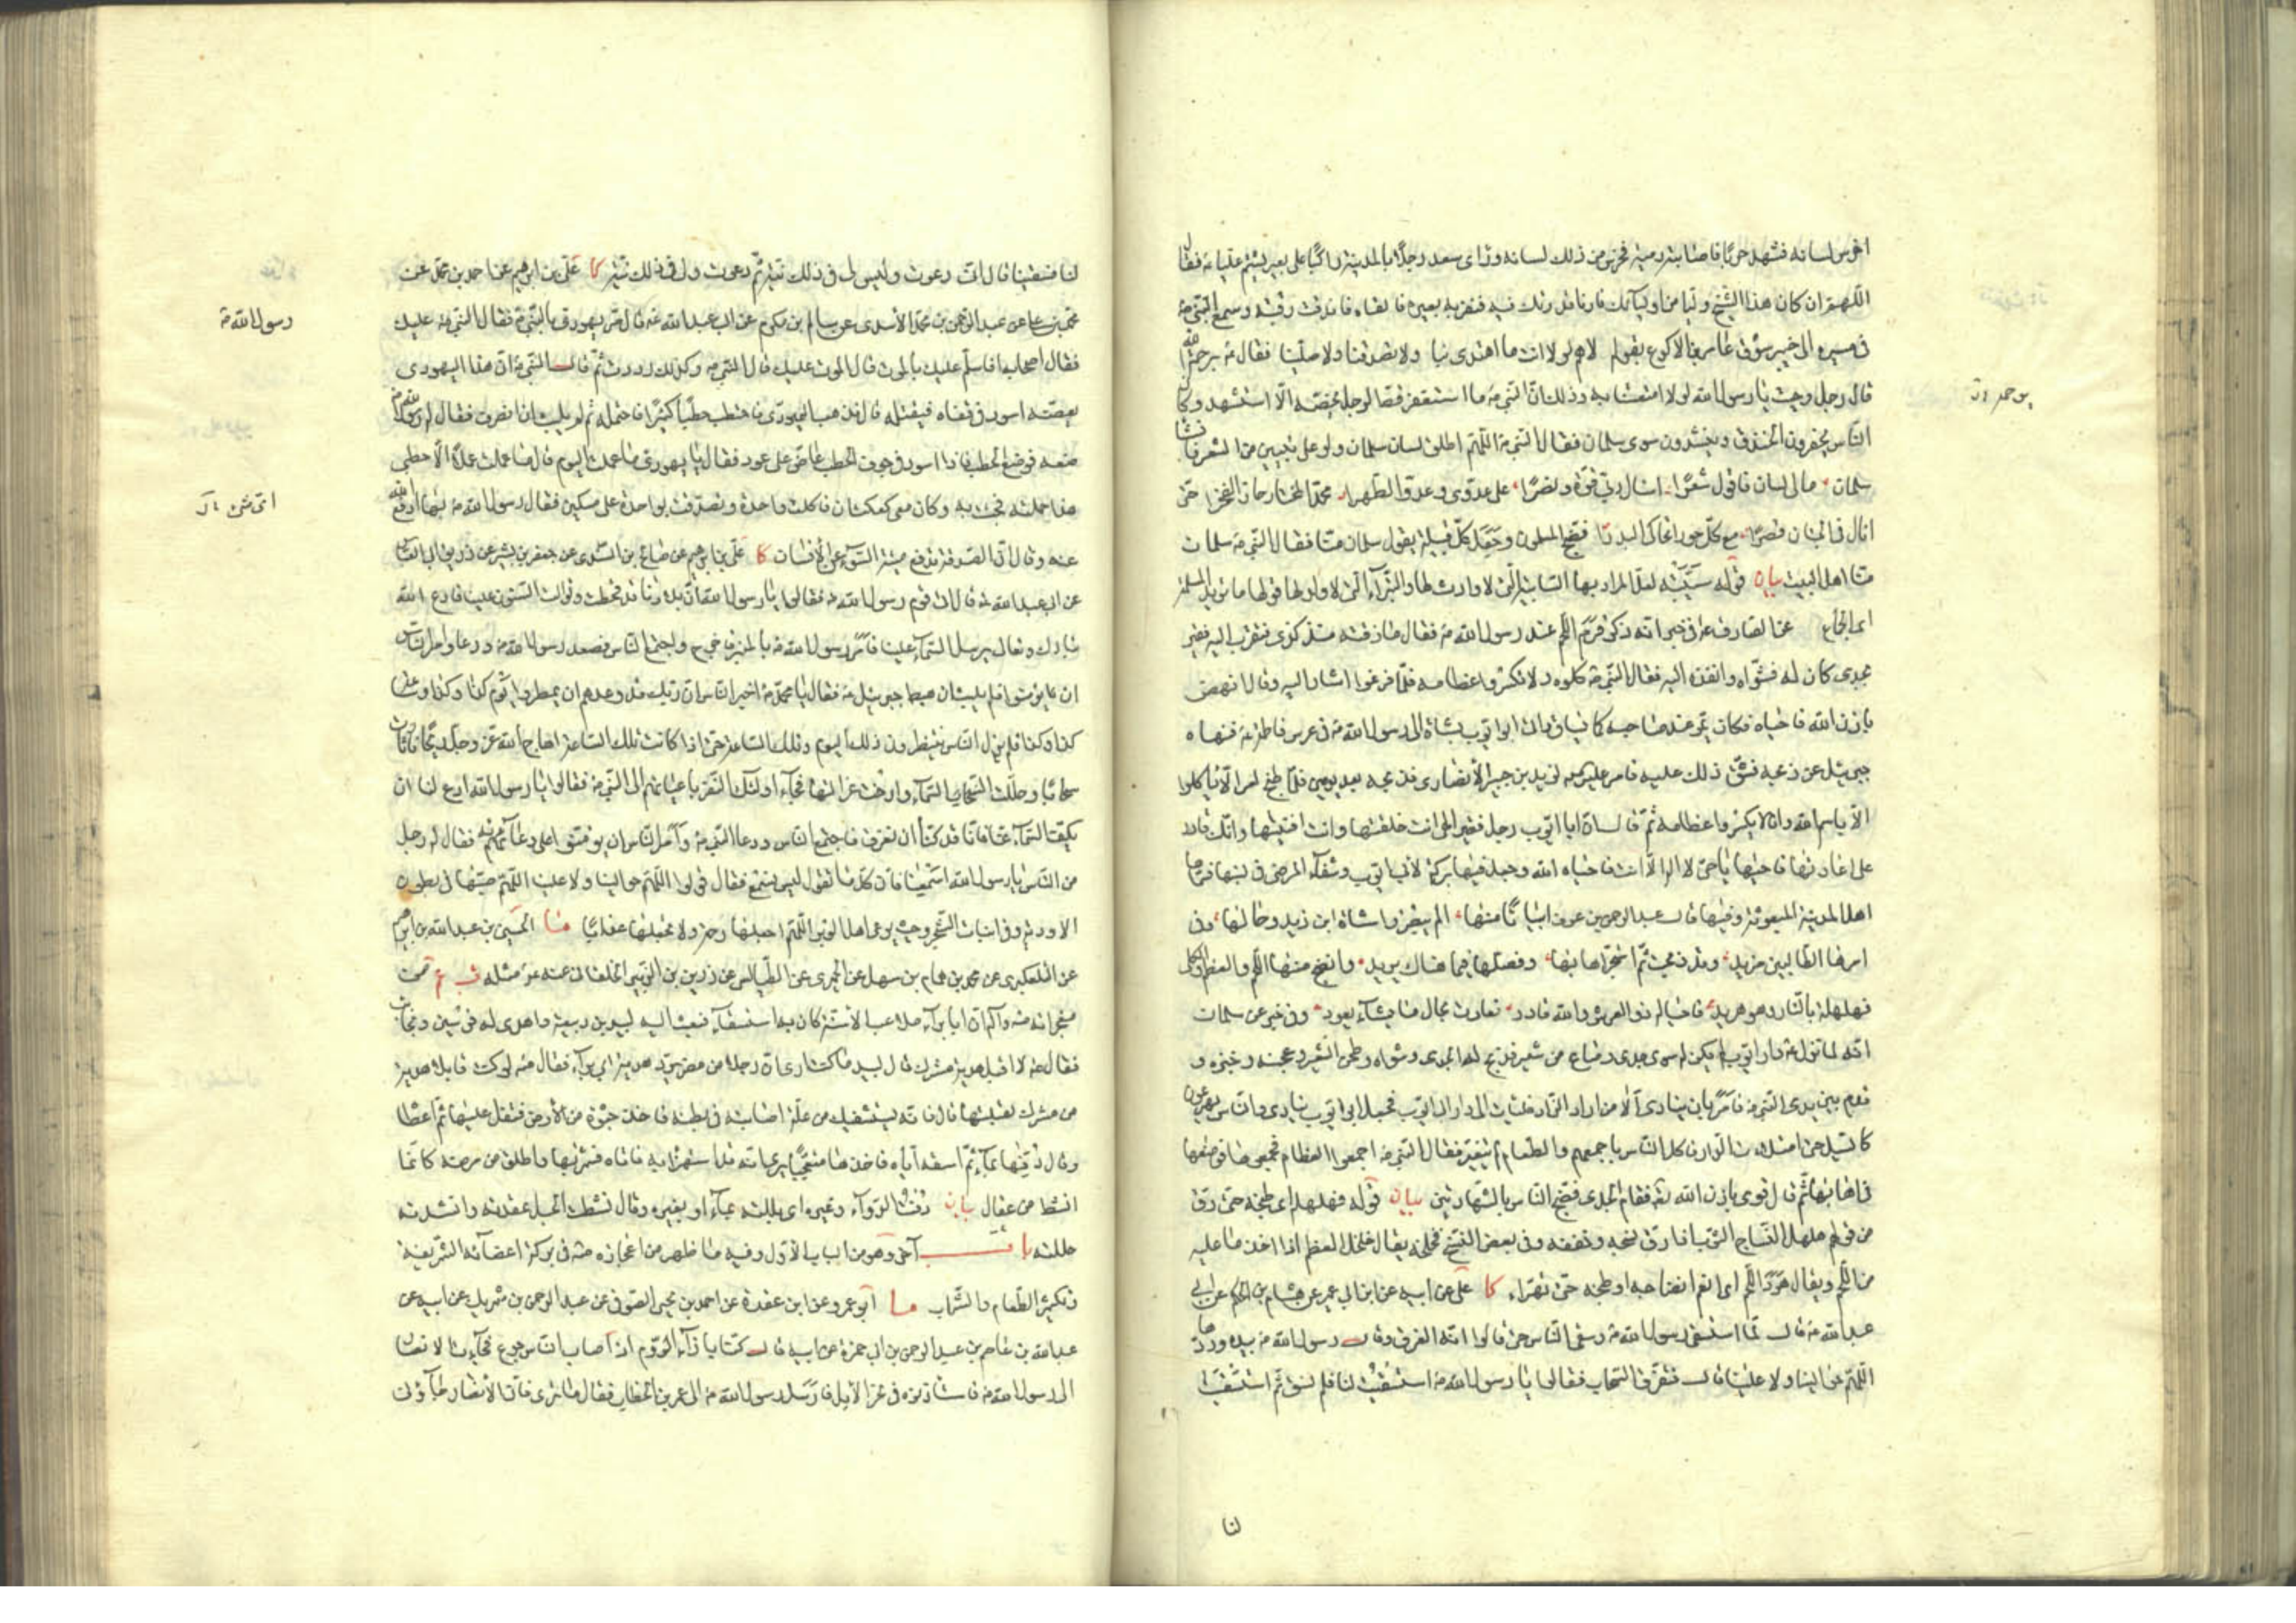 اخرس لسانه فشهد حربًا فاصابته رمية فخرس من ذلك لسانه وراى سعد رجلًا بالمدينة راكبًا على بعير يشتم عليا ع فقال
اللهم ان كان هذا الشيخ وليا من اوليائك فارنا قدرتك فيه فنفر به بعيره فالقاه فاندقت رقبته وسمع النبي ص
في مسيره الى خيبر سوق عامر بن الاكوع بقوله لاهم لولا انت ما اهتدينا ولا تصدقنا ولا صلينا فقال ص يرحمه الله
قال رجل وجبت يا رسول الله لولا امتعتنا به وذلك ان النبي ص ما استغفر قط لرجل يخصه الا استشهد وكان
الناس يحفرون الخندق وينشدون سوى سلمان فقال النبي ص اللهم اطلق لسان سلمان ولو على بيتين من الشعر فانشا
سلمان مالي لسان فاقول شعرًا اسال ربي قوة ونصرًا على عدوي وعدو الطهرا محمد المختار حاز الفخرا حتى
انال في الجنان قصرًا مع كل حوراء تحاكي البدرا فضج المسلمون وجعل كل قبيلة يقول سلمان منا فقال النبي ص سلمان
منا اهل البيت بيان قوله
عن الصادق ع في خبر انه ذكر قوم اللحم عند رسول الله ص فقال ما ذقته منذ كذا فتقرب اليه فقير
بجدي كان له فشواه وانفذه اليه فقال النبي ص كلوه ولا تكسروا عظامه فلما فرغوا اشار اليه وقال انهض
باذن الله فاحياه فكان يمر عند صاحبه كما يساق واتى ابو ايوب بشاة الى رسول الله ص في عرس فاطمة ع فنهاه
جبرئيل عن ذبحه فشق ذلك عليه فامر ع يزيد بن جبير الانصاري فذبحه بعد يومين فلما طبخ امر الا ياكلوا
الا باسم الله وان لا يكسروا عظامه ثم قال ان ابا ايوب رجل فقير الهي انت خلقتها وانت افنيتها وانك قادر
على اعادتها فاحيها يا حي لا اله الا انت فاحياه الله وجعل فيها بركة لابي ايوب وشفاء المرضى في لبنها فسماها
اهل المدينة المبعوثة وفيها قال عبد الرحمن بن عوف ابياتًا منها الم يبصروا شاة ابن زيد وحالها وفي
امرها للطالبين مزيد وقد ذبحت ثم استجز اهابها وفصلها فيما هناك يزيد وانضج منها اللحم والعظم والكلى
فهلهله بالنار وهو هريد فاحيا له ذو العرش والله قادر فعادت بحال ما يشاء يعود وفي خبر عن سلمان
انه لما نزل ع دار ابي ايوب لم يكن له سوى جدي وصاع من شعير فذبح له الجدي وشواه وطحن الشعير وعجنه وخبزه و
قدم بين يدي النبي ص فامر بان ينادي الا من اراد الزاد فليات الى دار ابي ايوب فجعل ابو ايوب ينادي والناس يهرعون
كالسيل حتى امتلات الدار فاكل الناس باجمعهم والطعام لم يتغير فقال النبي ص اجمعوا العظام فجمعوها فوضعها
في اهابها ثم قال قومي باذن الله تع فقام الجدي فضج الناس بالشهادتين بيان قوله فهلهله اي طبخه حتى رق
من قولهم هلهل النساج الثوب اذا ارق نسجه وخففه وفي بعض النسخ فخلخله يقال خلخل العظم اذا اخذ ما عليه
من اللحم ويقال هرد اللحم اي انعم انضاجه او طبخه حتى تهرا كا علي عن ابيه عن ابن ابي عمير عن هشام بن الحكم عن ابي
عبد الله ع قال لما استسقى رسول الله ص وسقي الناس حتى قالوا انه الغرق وقال رسول الله ص بيده وردها
اللهم حوالينا ولا علينا قال فتفرق السحاب فقالوا يا رسول الله ص استسقيت لنا فلم نسق ثم استسقيت
لنا
لنا فسقينا قال اني دعوت وليس لي في ذلك نية ثم دعوت ولي في ذلك نية كا علي بن ابرهيم عن احمد بن محمد عن
محمد بن عن عبد الرحمن بن محمد الاسدي عن سالم بن مكرم عن ابي عبد الله ع قال مر يهودي بالنبي ص فقال النبي ص عليك
رسول الله ص
فقال اصحابه انما سلم عليك بالموت قال الموت عليك قال النبي ص وكذلك رددت ثم قال النبي ص ان هذا اليهودي
يعضه اسود في قفاه فيقتله قال فذهب اليهودي فاحتطب حطبًا كثيرًا فاحتمله ثم لم يلبث ان انصرف فقال له رسول الله ص
ضعه فوضع الحطب فاذا اسود في جوف الحطب عاض على عود فقال يا يهودي ما عملت اليوم قال ما عملت عملًا الا حطبي
هذا حملته فجئت به وكان معي كعكتان فاكلت واحدة وتصدقت بواحدة على مسكين فقال رسول الله ص بها دفع الله
عنه وقال ان الصدقة تدفع ميتة السوء عن الانسان كا علي بن ابرهيم عن صالح بن السندي عن جعفر بن بشير عن رزيق ابي العباس
عن ابي عبد الله ع قال اتى قوم رسول الله ص فقالوا يا رسول الله ان بلادنا قد قحطت وتوالت السنون علينا فادع الله
تبارك وتعالى يرسل السماء علينا فامر رسول الله ص بالمنبر فاخرج واجتمع الناس فصعد رسول الله ص ودعا وامر الناس
ان يؤمنوا فلم يلبث ان هبط جبرئيل ع فقال يا محمد ص اخبر الناس ان ربك قد وعدهم ان يمطروا يوم كذا وكذا وساعة
كذا وكذا فلم يزل الناس ينتظرون ذلك اليوم وتلك الساعة حتى اذا كانت تلك الساعة اهاج الله عز وجل ريحًا فاثارت
سحابًا وجللت السماء وارخت عزاليها فجاء اولئك النفر باعيانهم الى النبي ص فقالوا يا رسول الله ادع لنا ان
يكف السماء عنا فانا قد كدنا ان نغرق فاجتمع الناس ودعا النبي ص وامر الناس ان يؤمنوا على دعائه فقال له رجل
من الناس يا رسول الله اسمعنا فان كل ما تقول ليس نسمع فقال قولوا اللهم حوالينا ولا علينا اللهم صبها في بطون
الاودية وفي نبات الشجر وحيث يرعى اهل الوبر اللهم اجعلها رحمة ولا تجعلها عذابًا ما الحسين بن عبد الله بن ابرهيم
عن التلعكبري عن محمد بن همام بن سهل عن الحميري عن الطيالسي عن رزيق بن الزبير الخلقاني عنه ع مثله
معجزاته ص واكثر ان ابا براء ملاعب الاسنة كان به استسقاء فبعث اليه لبيد بن ربيعة واهدى له فرسين ونجائب
فقال ص لا اقبل هدية مشرك قال لبيد ما كنت ارى ان رجلا من مضر يرد هدية ابي براء فقال ص لو كنت قابلا هدية
من مشرك لقبلتها قال فانه يستشفيك من علة اصابته في بطنه فاخذ حثوة من الارض فتفل عليها ثم اعطاه
وقال دفها بماء ثم اسقه اياه فاخذها متعجبًا يرى انه قد استهزا به فاتاه فشربها واطلق من مرضه كانما
انشط من عقال بيان دفت الدواء وغيره اي بللته بماء او بغيره وقال نشطت الحبل عقدته وانشدته
حللته باب آخر وهو من الباب الاول وفيه ما ظهر من اعجازه ص في بركة اعضائه الشريفة
وتكثير الطعام والشراب ما ابو عمرو عن ابن عقدة عن احمد بن يحيى الصوفي عن عبد الرحمن بن شريك عن ابيه عن
عبد الله بن عاصم بن عبد الرحمن بن ابي عمرة عن ابيه قال كنا بازاء الروم اذ اصاب الناس جوع فجاءت الانصار
الى رسول الله ص فاستاذنوه في نحر الابل فارسل رسول الله ص الى عمر بن الخطاب فقال ما ترى فان الانصار جاؤني